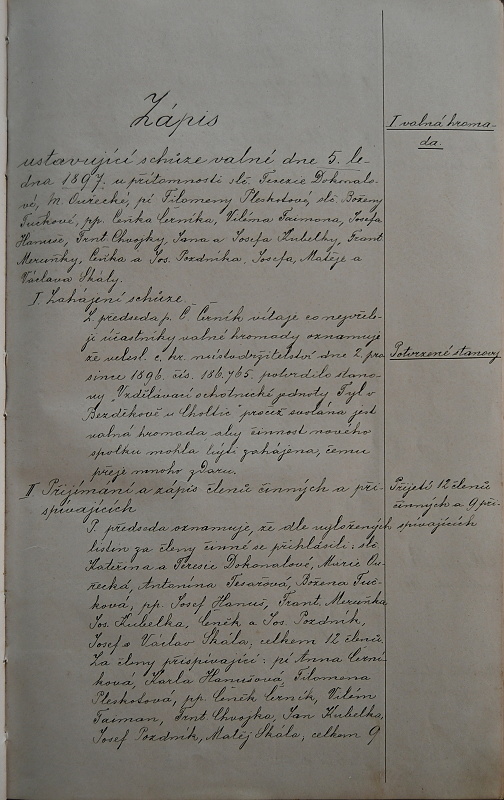 Zápis
I. valná hroma-
da.
ustavující schůze valné dne 5. le-
dna 1897. u přítomnosti slč. Terezie Dokonalo-
vé, M. Ouřecké, pí Filomeny Pleskotové, slč. Boženy
Tučkové, pp. Čeňka Černíka, Viléma Taimana, Josefa
Hanuše, Frnt. Chvojky, Jana a Josefa Kubelky, Frant.
Meruňky, Čeňka a Jos. Pozdníka, Josefa, Matěje a
Václava Skály.
I. Zahájení schůze.
Z. předseda p. Č. Černík vítaje co nejvřele-
ji účastníky valné hromady oznamuje
že velesl. c. kr. místodržitelství dne 2. pro
since 1896. čís. 186.765. potvrdilo stano-
vy "Vzdělávací ochotnické jednoty Tyl v
Bezděkově u Choltic" pročež svolána jest
valná hromada aby činnost nového
spolku mohla býti zahájena, čemu
přeje mnoho zdaru.
Potvrzené stanovy
II Přijímání a zápis členů činných a při-
spívajících
P. předseda oznamuje, že dle vyložených
listin za členy činné se přihlásili: slč.
Kateřina a Terezie Dokonalové, Marie Ou-
řecká, Antonína Tesařová, Božena Tuč-
ková, pp. Josef Hanuš, Frant. Meruňka,
Jos. Kubelka, Čeněk a Jos. Pozdník,
Josef a Václav Skála; celkem 12 členů.
Za členy přispívající: pí Anna Černí
ková, Karla Hanušová, Filomena
Pleskotová, pp. Čeněk Černík, Vilém
Taiman, Frnt. Chvojka, Jan Kubelka,
Josef Pozdník, Matěj Skála; celkem 9
Přijetí 12 členů
činných a 9 při-
spívajících